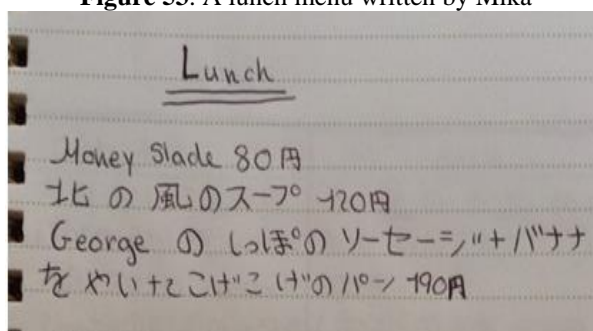 A lunch menu written by Mika
Lunch
Money Slade 80円
北の風のスープ 120円
George のしっぽのソーセージ+バナナ
をやいたこげこげのパン 190円